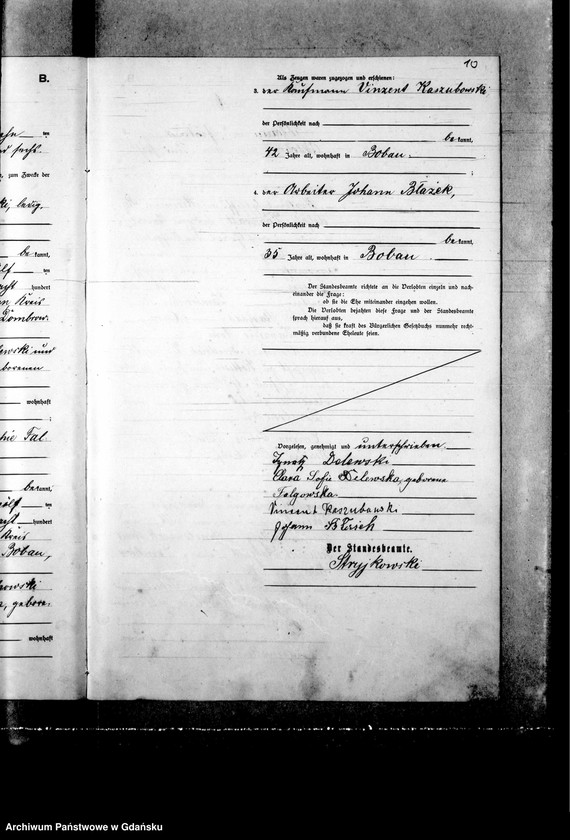 B.
wohnhaft
hundert
zum Zwecke der
be kannt,
hundert
Kreis
wohnhaft
be kannt,
hundert
Kreis
Bobau,
wohnhaft
10
Als Zeugen waren zugezogen und erschienen:
3. der Kaufmann Vinzent Kaszubowski
der Persönlichkeit nach
be kannt,
42 Jahre alt, wohnhaft in Bobau.
;
4. der Arbeiter Johann Błażek,
der Persönlichkeit nach
be kannt,
35 Jahre alt, wohnhaft in Bobau
Der Standesbeamte richtete an die Verlobten einzeln und nach-
einander die Frage:
ob sie die Ehe miteinander eingehen wollen.
Die Verlobten bejahten diese Frage und der Standesbeamte
sprach hierauf aus,
daß sie kraft des Bürgerlichen Gesetzbuchs nunmehr recht-
mäßig verbundene Eheleute seien.
Vorgelesen, genehmigt und unterschrieben
Ignatz Delewski
Clara Sofie Delewska, geborene
Talgowska.
Vincent Kaszubowski
Johann
Der Standesbeamte.
Stryjkowski
Archiwum Państwowe w Gdańsku